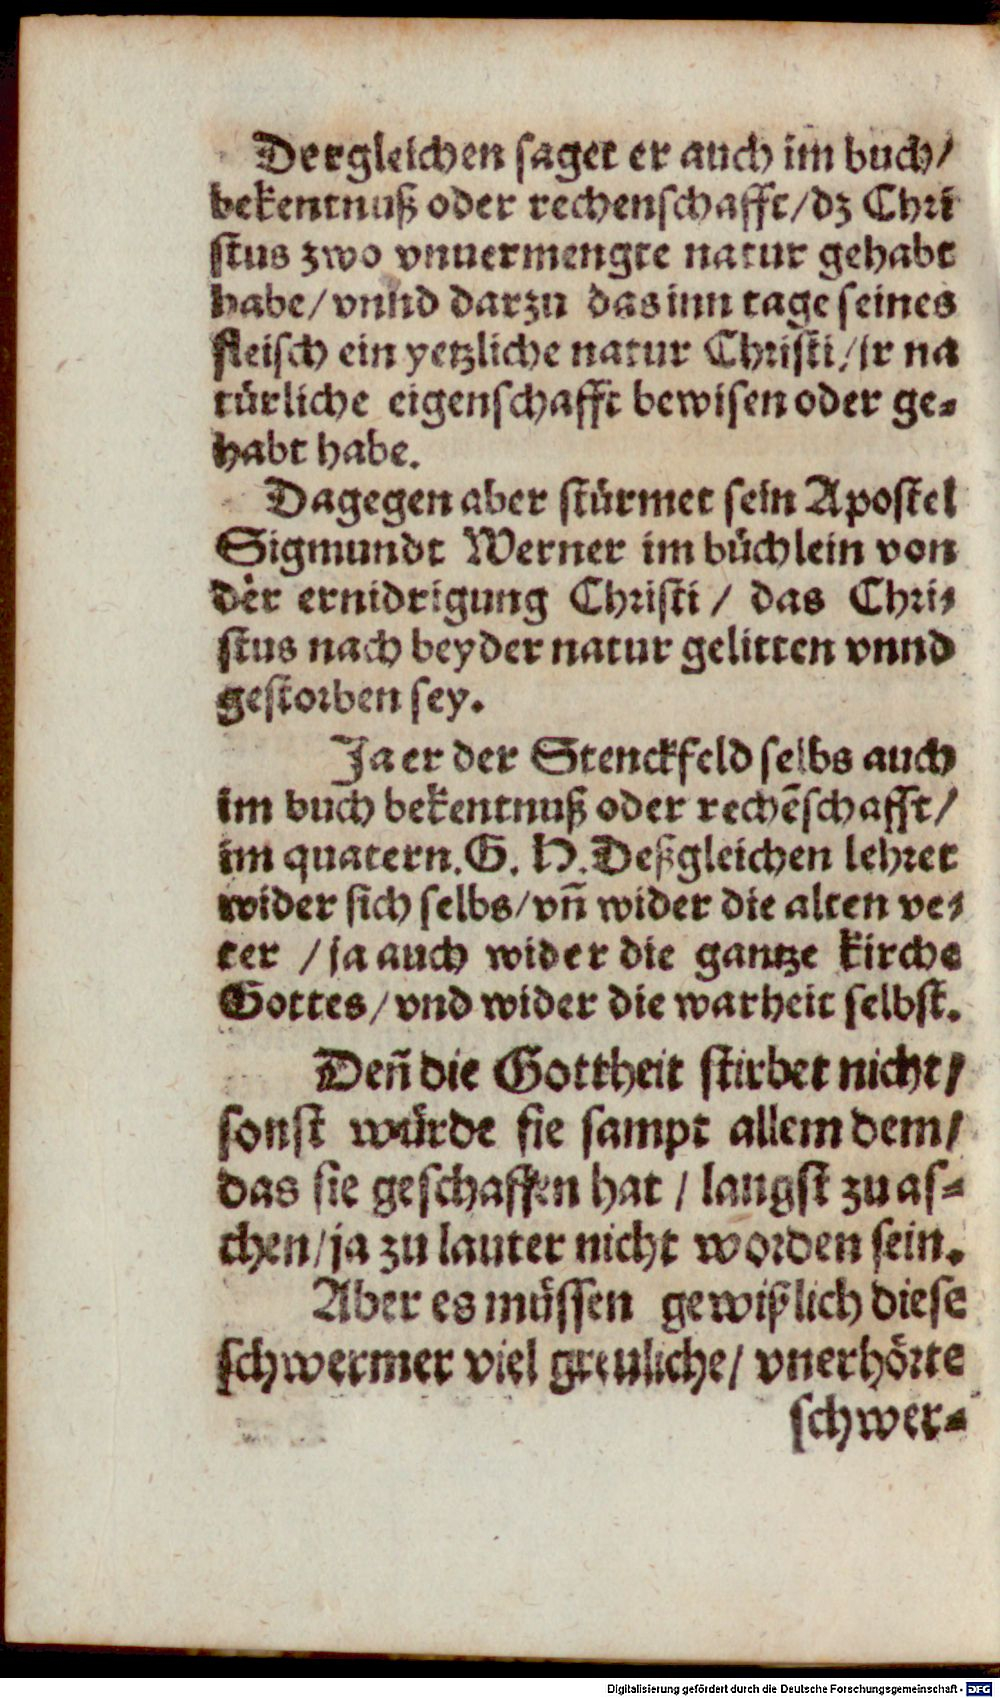 Dergleichen saget er auch im buch/
bekentnuß oder rechenschafft/dz Chri
stus zwo vnuermengte natur gehabt
habe/vnnd darzu das inn tage seines
fleisch ein yetzliche natur Christi/jr na
türliche eigenschafft bewisen oder ge-
habt habe.
Dagegen aber stürmet sein Apostel
Sigmundt Werner im büchlein von
der ernidrigung Christi / das Chri-
stus nach beyder natur gelitten vnnd
gestorben sey.
Ja er der Stenckfeld selbs auch
im buch bekentnuß oder rechēschafft/
im quatern.G. H.Deßgleichen lehret
wider sich selbs/vñ wider die alten ve-
ter /ja auch wider die gantze kirche
Gottes/vnd wider die warheit selbst.
Deñ die Gottheit stirbet nicht/
sonst würde sie sampt allem dem/
das sie geschaffen hat / langst zu as-
chen/ja zu lauter nicht worden sein.
Aber es müssen gewißlich diese
schwermer viel greuliche/ vnerhörte
schwer-
Digitalisierung gefördert durch die Deutsche Forschungsgemeinschaft - DFG